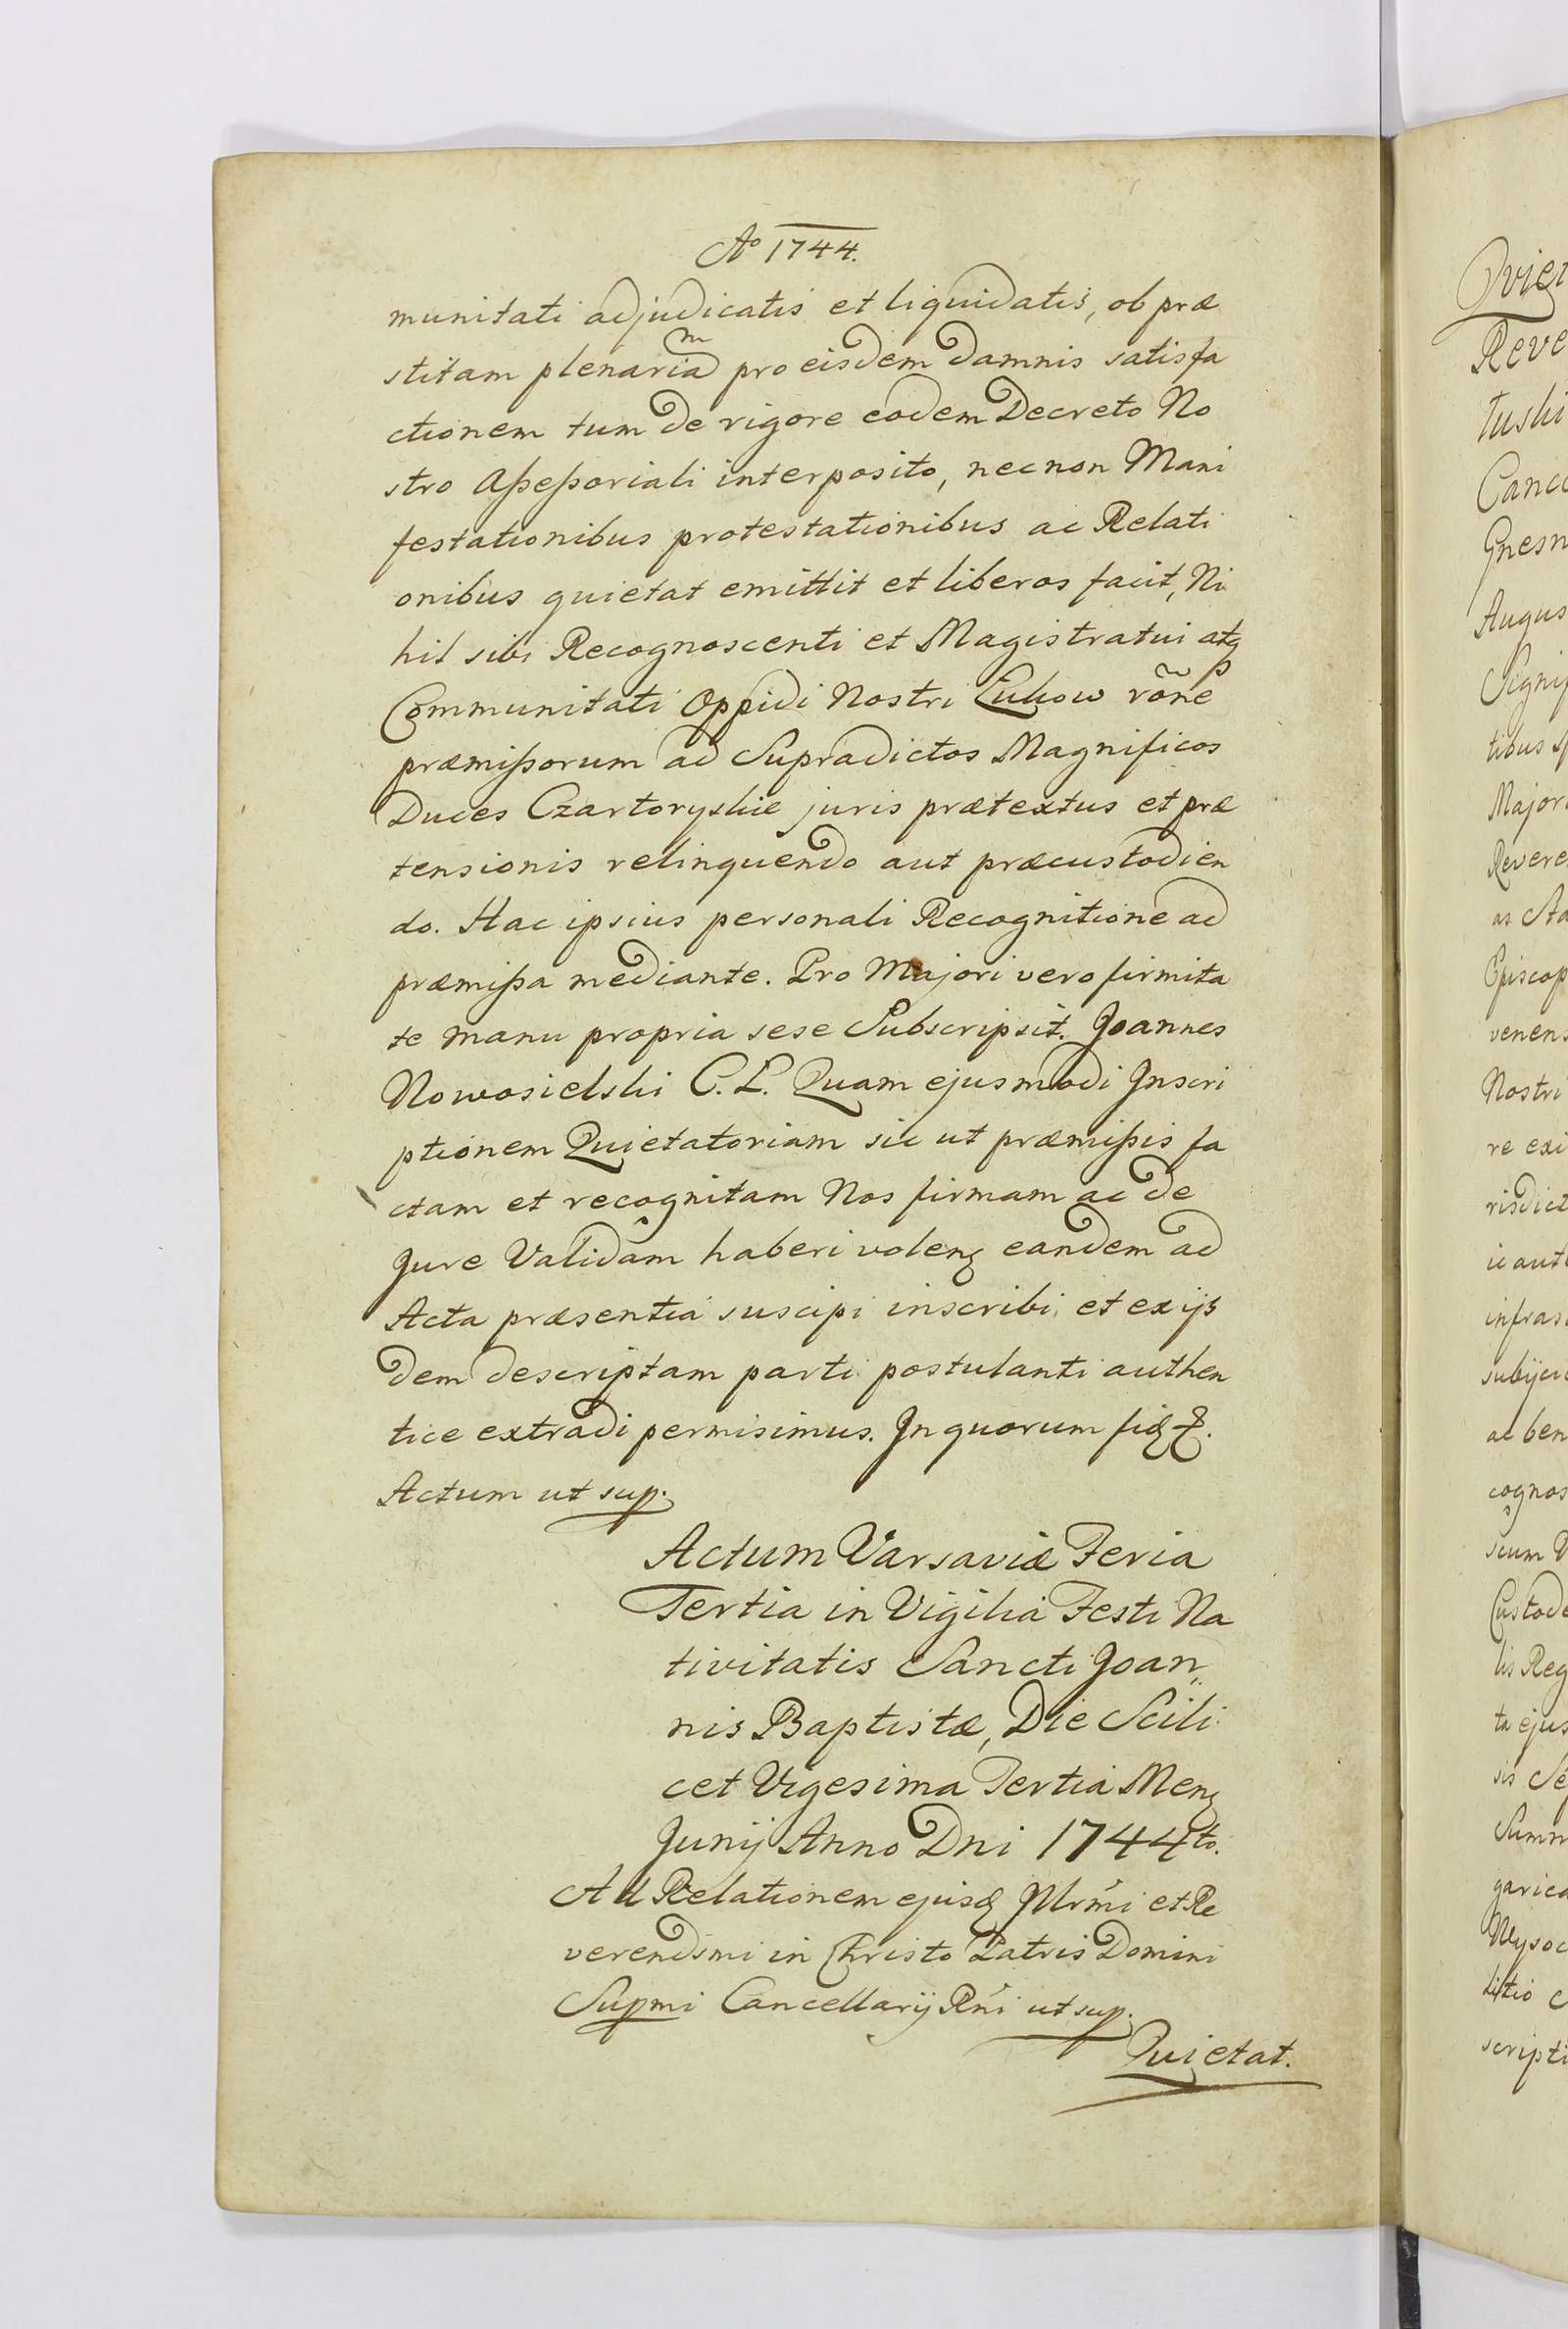 Aº 1744.
munitati adjudicatis et liquidatis, ob præ
stitam plenariam pro eisdem damnis satisfa
ctionem tum de rigore eodem Decreto No
stro Aßeßoriali interposito, necnon Mani
festationibus protestationibus ac Relati
onibus quietat emittit et liberos facit, Ni
hil sibi Recognoscenti et Magistratui atq
Communitati Oppidi Nostri Łukow rõne
præmißorum ad Supradictos Magnificos
Duces Czartoryskie juris prætextus et præ
tensionis relinquendo aut præcustodien
do. Hac ipsius personali Recognitione ad
præmißa mediante. Pro Majori vero firmita
te manu propria sese Subscripsit. Joannes
Nowosielski C. L. Quam ejusmodi Inscri
ptionem Quietatoriam sic ut præmißis fa
ctam et recognitam Nos firmam ac de
Jure Validam haberi volenę eandem ad
Acta præsentia suscipi inscribi et ex ijs
dem descriptam parti postulanti authen
tice extradi permisimus. In quorum fidę &.
Actum ut sup.
Actum Varsaviæ Feria
Tertia in Vigilia Festi Na
tivitatis Sancti Joan„
nis Baptistæ, Die Scili
cet Vigesima Tertia Menę
Junij Anno Dni 1744to.
Ad Relationem ejusdę Illrm̃i et Re
verendsmi in Christo Patris Domini
Supmi Cancellarij Rñi ut sup.
Quietat.
Quiet
Reve
tuski
Cance
Gnesn
Augus
Signif
tibus
Major
Revere
as Sta
Episcop
venens
Nostri
re exi
risdict
ic aut
infras
subijci
ac ben
cognos
scum
Custode
lis Reg
ta ejus
sis Se
Summ
garica
Wysoc
ditio
scripti